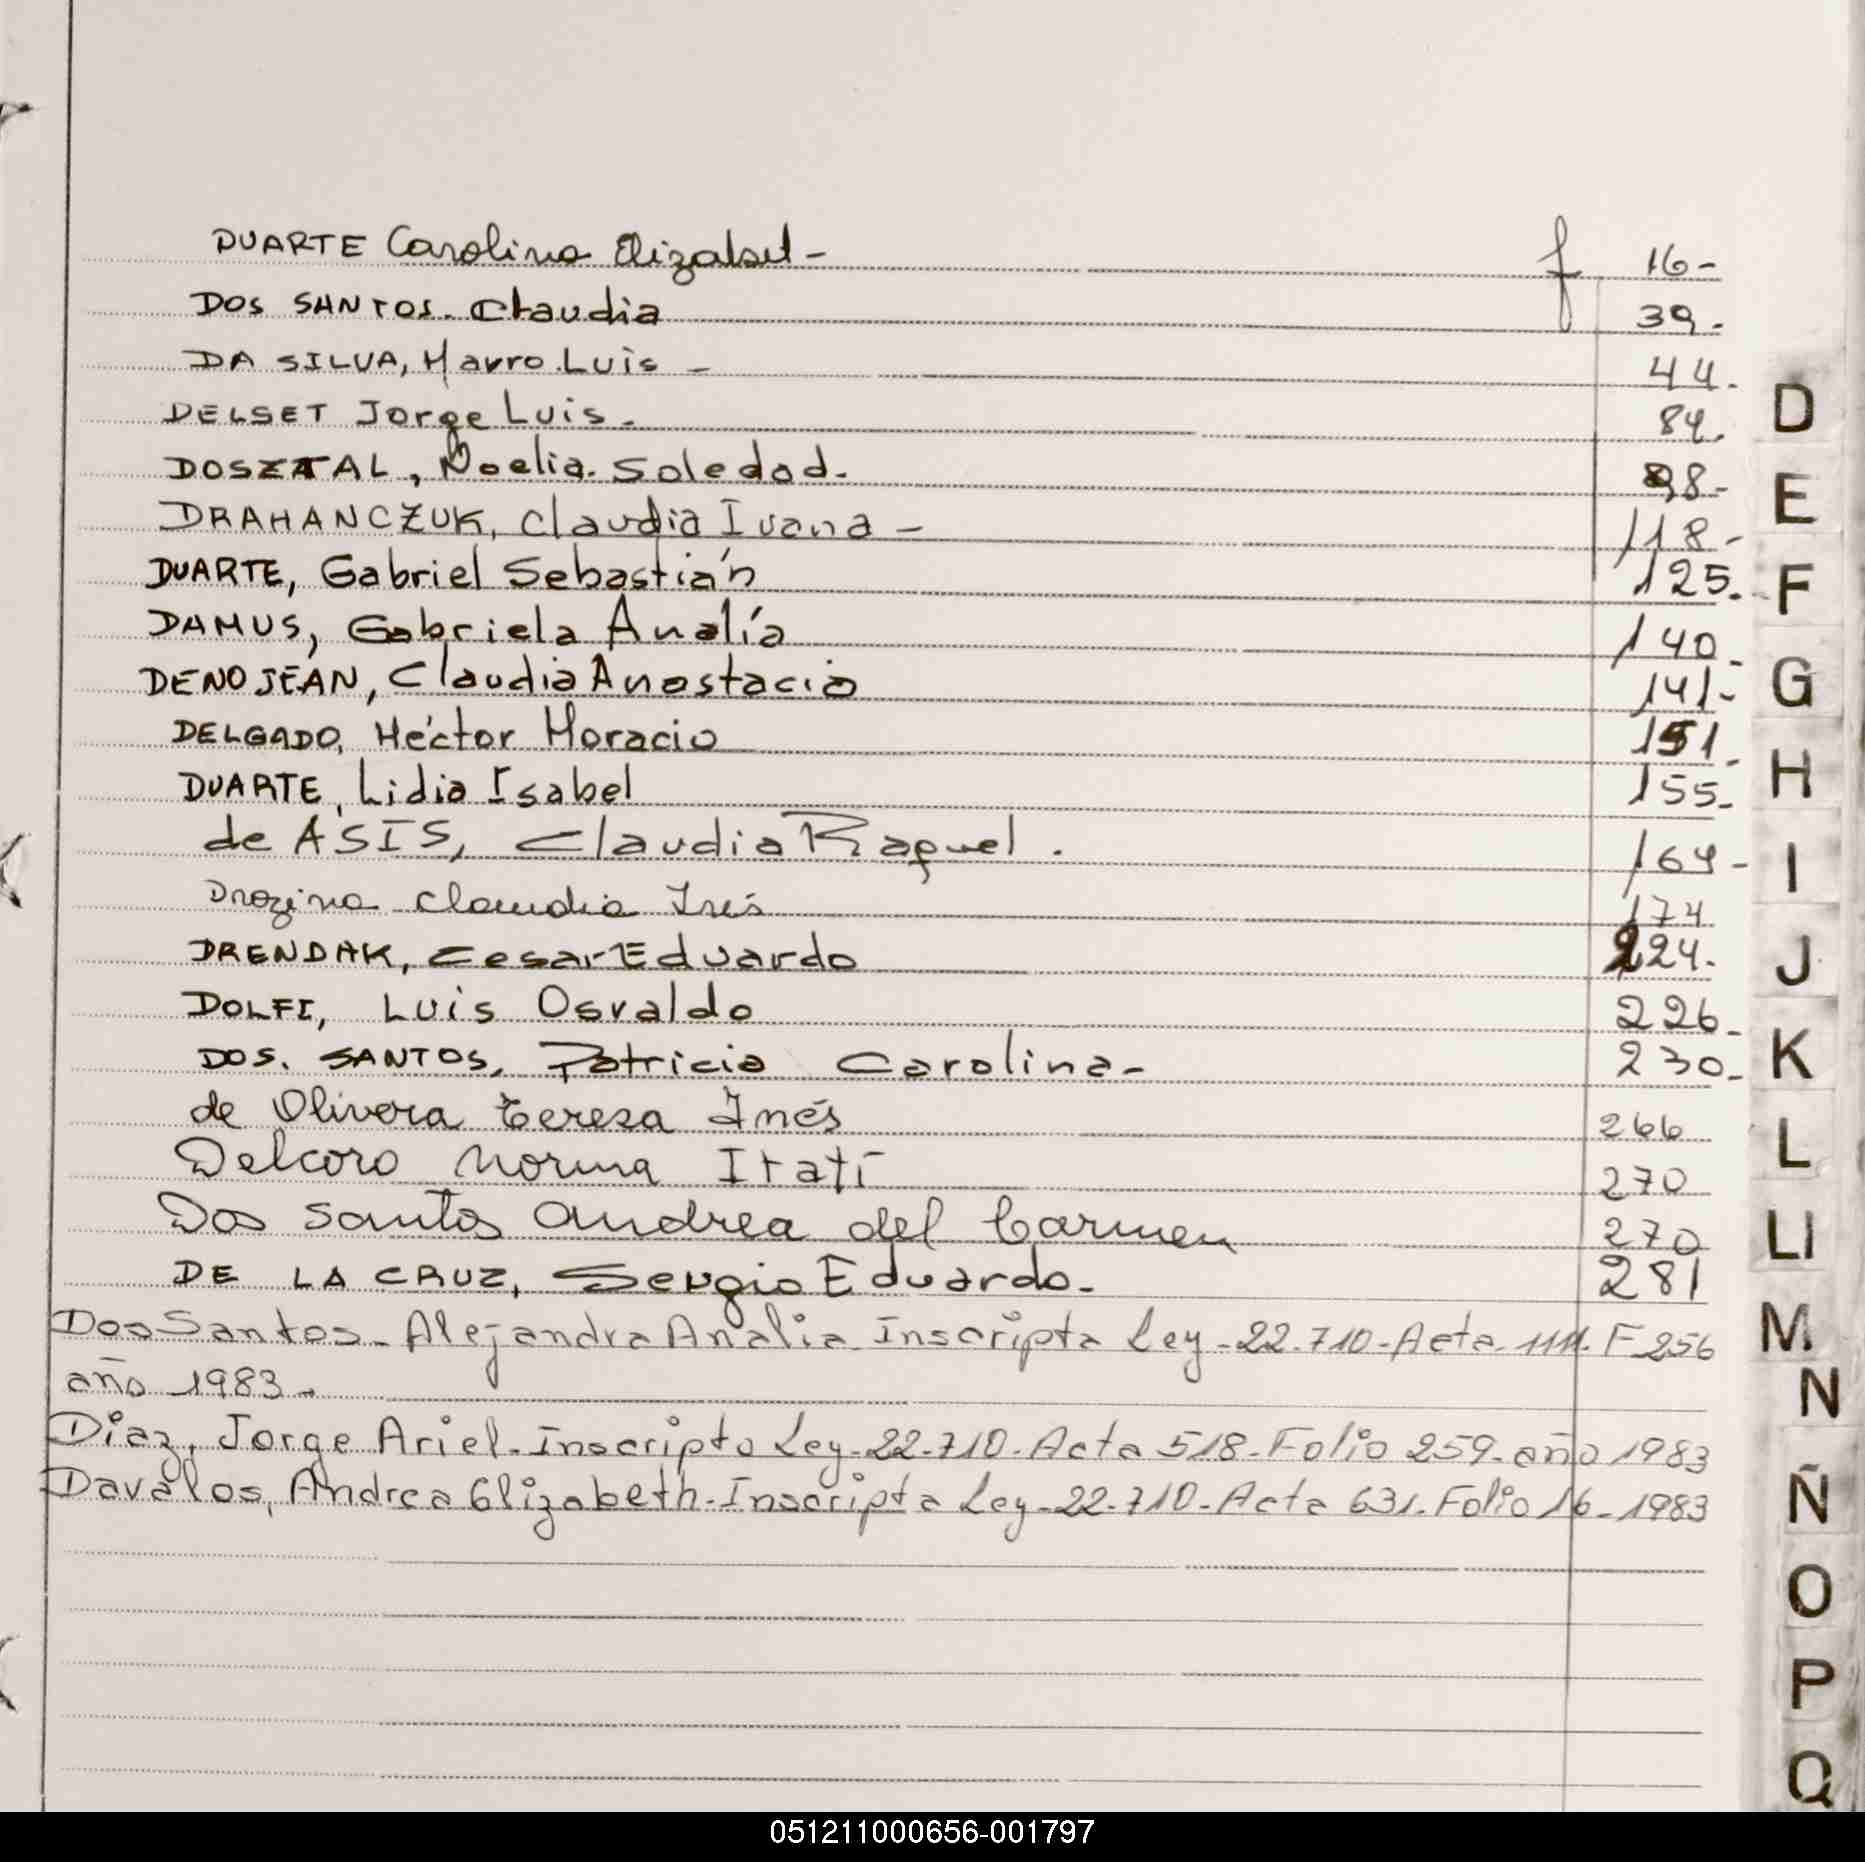 DUARTE Carolina Elizabet - f 16-
DOS SANTOS. Claudia 39.
DA SILVA, Mauro Luis - 44.
DELSET Jorge Luis. 84.
DOSZTAL, Noelia Soledad. 98-
DRAHANCZUK, Claudia Ivana - 118-
DUARTE, Gabriel Sebastián 125.
DAMUS, Gabriela Analía 140-
DENOJEAN, Claudia Anastacia 141-
DELGADO, Héctor Horacio 151.
DUARTE, Lidia Isabel 155-
de ASIS, Claudia Raquel. 164-
Drozina Claudia Inés 174
DRENDAK, Cesar Eduardo 224.
DOLFI, Luis Osvaldo 226-
DOS. SANTOS, Patricia Carolina- 230-
de Olivera Teresa Inés 266
Delcoro Norma Itatí 270
Dos Santos Andrea del Carmen 270
DE LA CRUZ, Sergio Eduardo- 281
Dos Santos- Alejandra Analia Inscripta Ley-22.710-Acta. 1111. F 256
año 1983-
Diaz, Jorge Ariel-Inscripto Ley-22-710-Acta 518-Folio 259-año 1983
Davalos, Andrea Elizabeth-Inscripta Ley-22-710-Acta 631. Folio 16-1983
D
E
F
G
H
I
J
K
L
Ll
M
N
Ñ
O
P
Q
051211000656-001797